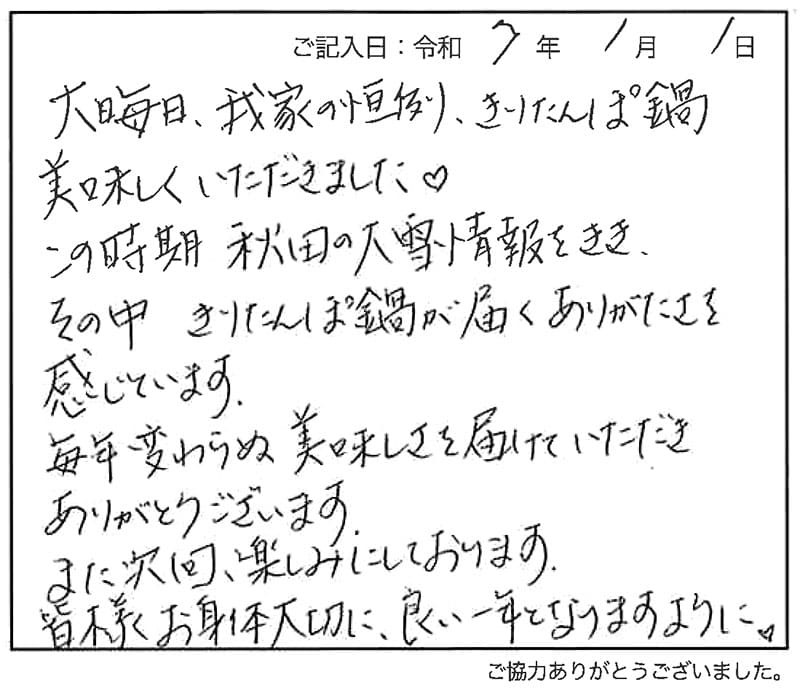 ご記入日：令和 7 年 1 月 1 日
大晦日、我家の恒例、きりたんぽ鍋
美味しくいただきました♡
この時期 秋田の大雪情報をきき、
その中 きりたんぽ鍋が届くありがたさを
感じています。
毎年変わらぬ美味しさを届けていただき
ありがとうございます。
また次回、楽しみにしております。
皆様くお身体大切に、良い一年となりますように♥
ご協力ありがとうございました。